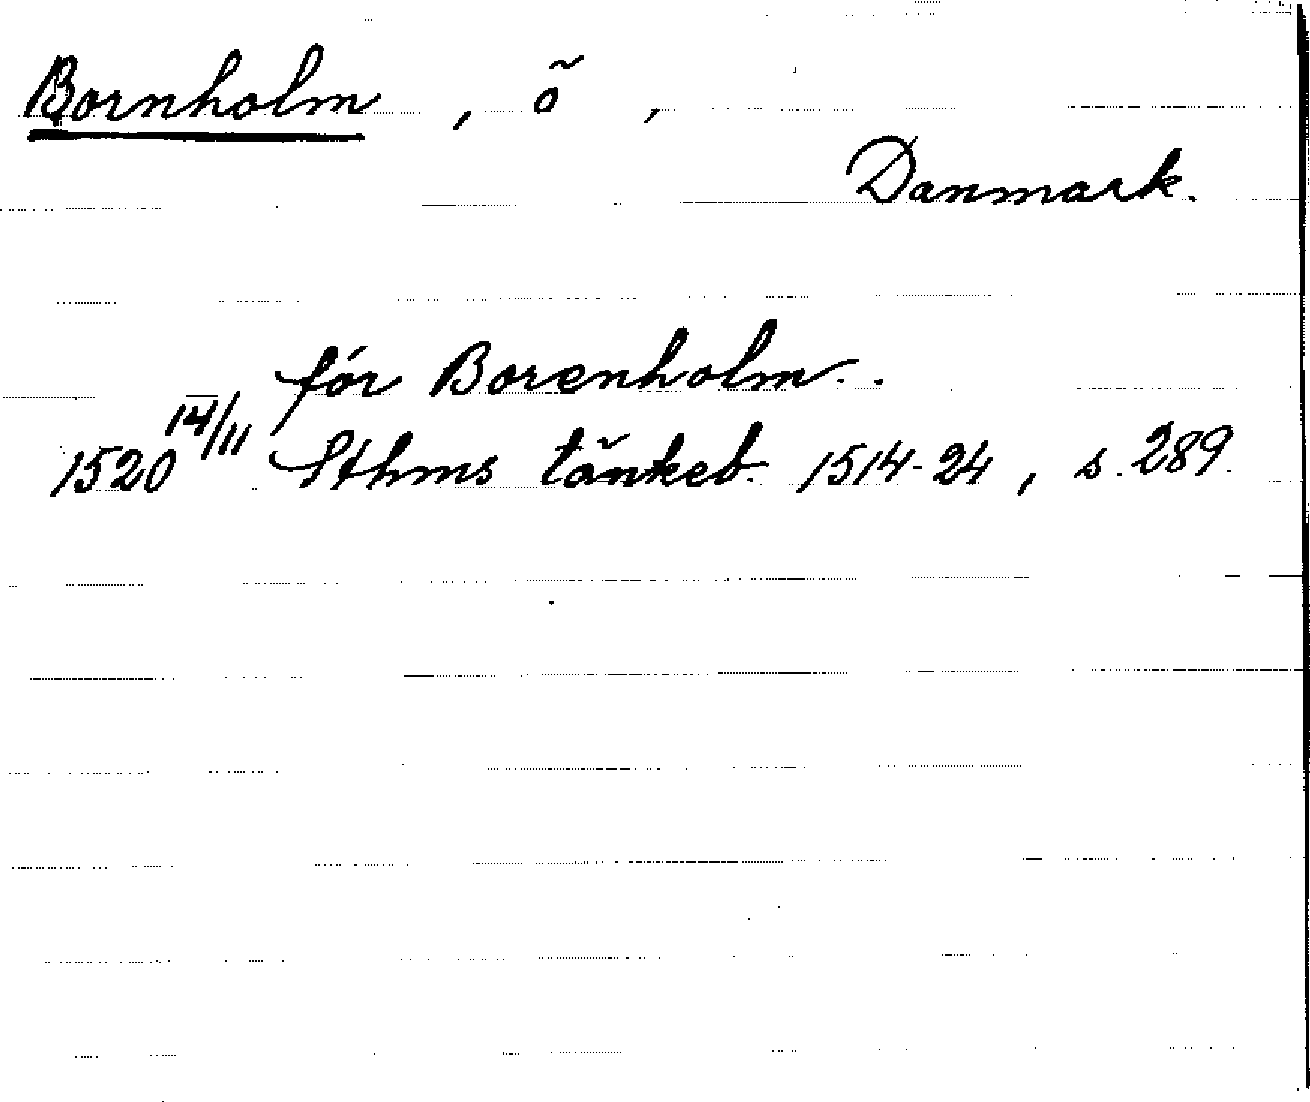 Bornholm, ö,
Danmark.
för Borenholm.
1520 14/11 Sthms tänkeb. 1514-24, s. 289.